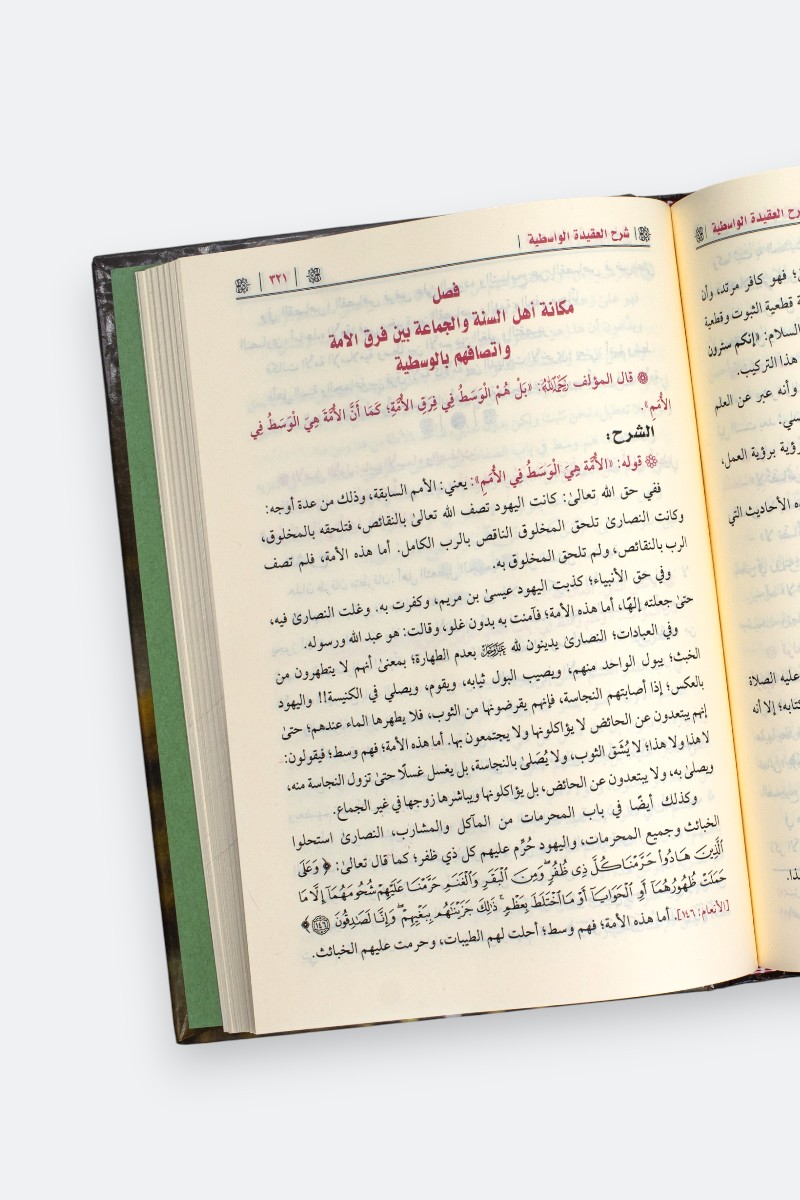 شرح العقيدة الواسطية
٣٢١
فصل
مكانة أهل السنة والجماعة بين فرق الأمة
واتصافهم بالوسطية
قال المؤلف رحمه الله: «بَلْ هُمْ الْوَسَطُ فِي فِرَقِ الأُمَّةِ؛ كَمَا أَنَّ الأُمَّةَ هِيَ الْوَسَطُ فِي
الأُمَمِ».
الشرح:
قوله: «الأُمَّةَ هِيَ الْوَسَطُ فِي الأُمَمِ»: يعني: الأمم السابقة، وذلك من عدة أوجه:
ففي حق الله تعالىٰ: كانت اليهود تصف الله تعالىٰ بالنقائص، فتلحقه بالمخلوق،
وكانت النصارىٰ تلحق المخلوق الناقص بالرب الكامل. أما هذه الأمة، فلم تصف
الرب بالنقائص، ولم تلحق المخلوق به.
وفي حق الأنبياء؛ كذبت اليهود عيسىٰ بن مريم، وكفرت به. وغلت النصارىٰ فيه،
حتىٰ جعلته إلهًا، أما هذه الأمة؛ فآمنت به بدون غلو، وقالت: هو عبد الله ورسوله.
وفي العبادات؛ النصارىٰ يدينون لله عز وجل بعدم الطهارة؛ بمعنىٰ أنهم لا يتطهرون من
الخبث؛ يبول الواحد منهم، ويصيب البول ثيابه، ويقوم، ويصلي في الكنيسة!! واليهود
بالعكس؛ إذا أصابتهم النجاسة، فإنهم يقرضونها من الثوب، فلا يطهرها الماء عندهم؛ حتىٰ
إنهم يبتعدون عن الحائض لا يؤاكلونها ولا يجتمعون بها. أما هذه الأمة؛ فهم وسط؛ فيقولون:
لا هذا ولا هذا؛ لا يُشَق الثوب، ولا يُصَلىٰ بالنجاسة، بل يغسل غسلًا حتىٰ تزول النجاسة منه،
ويصلىٰ به، ولا يبتعدون عن الحائض، بل يؤاكلونها ويباشرها زوجها في غير الجماع.
وكذلك أيضًا في باب المحرمات من المآكل والمشارب، النصارىٰ استحلوا
الخبائث وجميع المحرمات، واليهود حُرِّم عليهم كل ذي ظفر؛ كما قال تعالىٰ: ﴿وَعَلَى
الَّذِينَ هَادُوا حَرَّمْنَا كُلَّ ذِي ظُفُرٍ وَمِنَ الْبَقَرِ وَالْغَنَمِ حَرَّمْنَا عَلَيْهِمْ شُحُومَهُمَا إِلَّا مَا
حَمَلَتْ ظُهُورُهُمَا أَوِ الْحَوَايَا أَوْ مَا اخْتَلَطَ بِعَظْمٍ ذَٰلِكَ جَزَيْنَاهُم بِبَغْيِهِمْ وَإِنَّا لَصَادِقُونَ ١٤٦﴾
[الأنعام: ١٤٦]. أما هذه الأمة؛ فهم وسط؛ أحلت لهم الطيبات، وحرمت عليهم الخبائث.
شرح العقيدة الواسطية
؛ فهو كافر مرتد، وأن
قطعية الثبوت وقطعية
السلام: «إنكم سترون
هذا التركيب.
وأنه عبر عن العلم
رؤية برؤية العمل،
الأحاديث التي
عليه الصلاة
إلا أنه